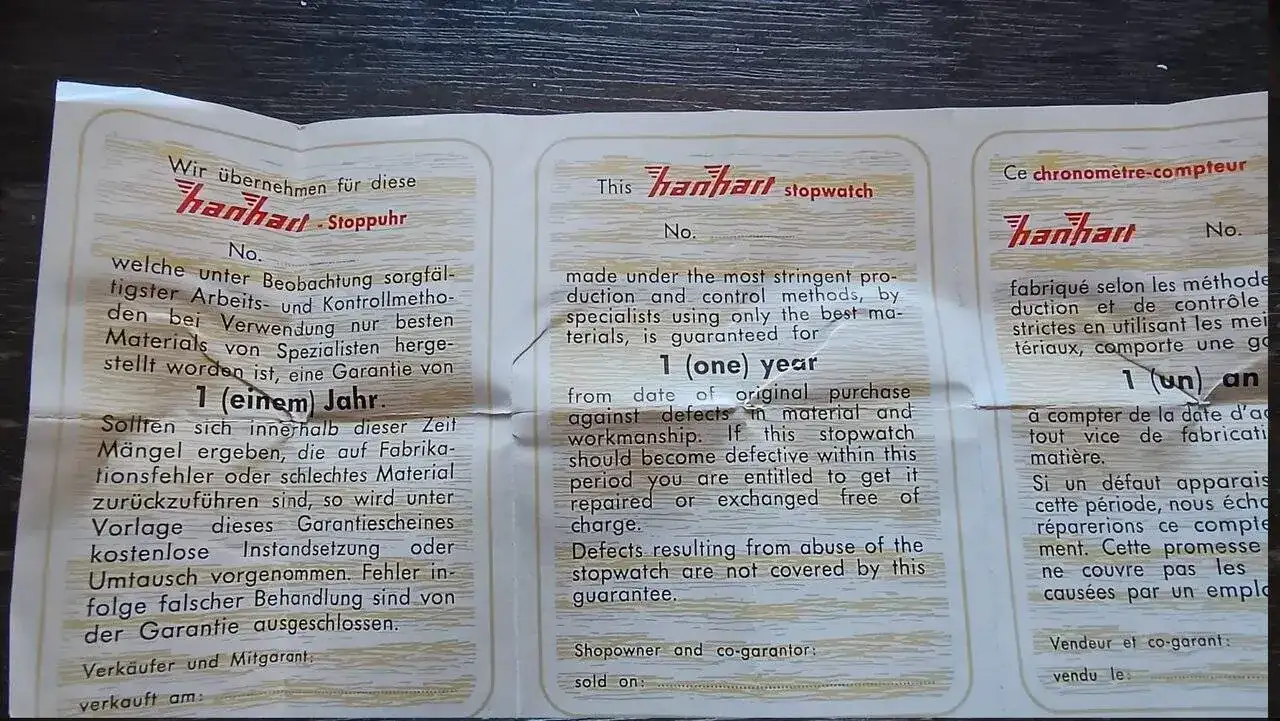 Wir übernehmen für diese
hanhart - Stoppuhr
No. ....................
welche unter Beobachtung sorgfäl-
tigster Arbeits- und Kontrollmetho-
den bei Verwendung nur besten
Materials von Spezialisten herge-
stellt worden ist, eine Garantie von
1 (einem) Jahr.
Sollten sich innerhalb dieser Zeit
Mängel ergeben, die auf Fabrika-
tionsfehler oder schlechtes Material
zurückzuführen sind, so wird unter
Vorlage dieses Garantiescheines
kostenlose Instandsetzung oder
Umtausch vorgenommen. Fehler in-
folge falscher Behandlung sind von
der Garantie ausgeschlossen.
Verkäufer und Mitgarant:
verkauft am:
This hanhart stopwatch
No. ....................
made under the most stringent pro-
duction and control methods, by
specialists using only the best ma-
terials, is guaranteed for
1 (one) year
from date of original purchase
against defects in material and
workmanship. If this stopwatch
should become defective within this
period you are entitled to get it
repaired or exchanged free of
charge.
Defects resulting from abuse of the
stopwatch are not covered by this
guarantee.
Shopowner and co-garantor:
sold on:
Ce chronomètre-compteur
hanhart No.
fabriqué selon les méthode
duction et de contrôle
strictes en utilisant les mei
tériaux, comporte une ga
1 (un) an
à compter de la date d'ac
tout vice de fabricati
matière.
Si un défaut apparais
cette période, nous écha
réparerions ce compte
ment. Cette promesse
ne couvre pas les
causées par un emplo
Vendeur et co-garant:
vendu le: